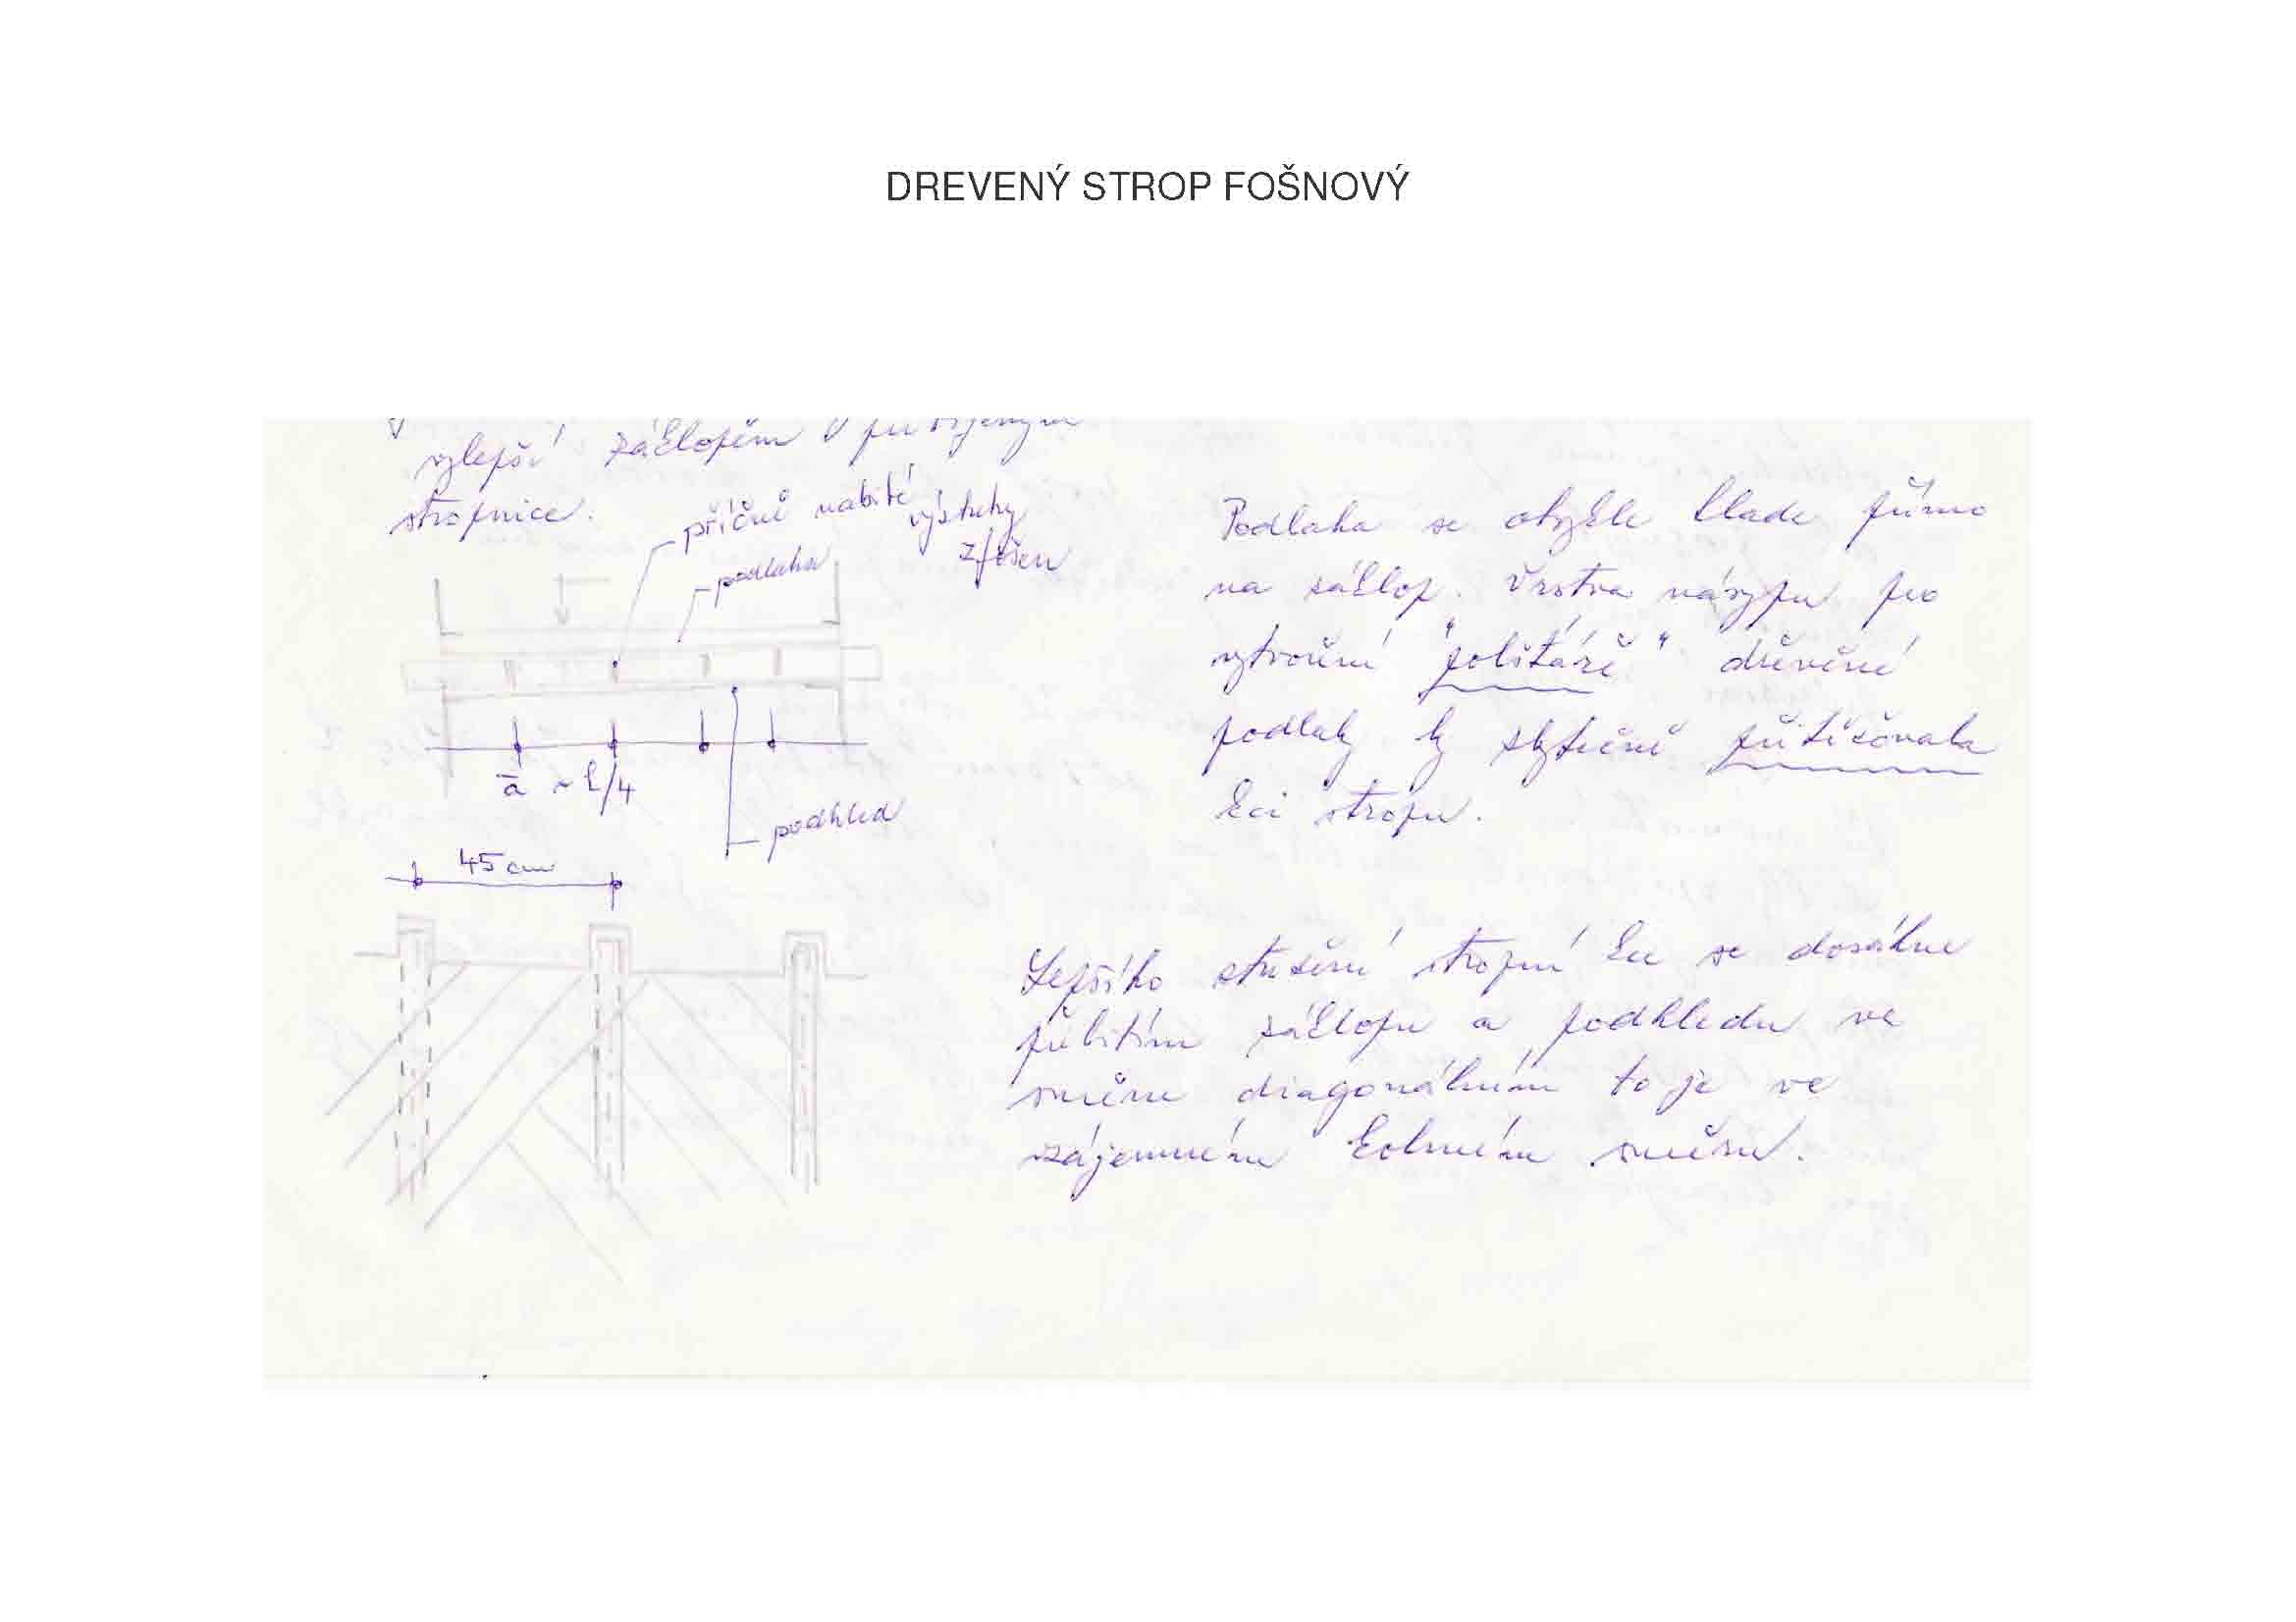 DREVENÝ STROP FOŠNOVÝ
vylepší záklopem
stropnice.
příčně nabité
výstuhy
z fošen
podlaha
ā ~ l/4
podhled
45 cm
Podlaha se obykle klade přímo
na záklop. Vrstva násypu pro
vytvoření "polštářě" dřevěné
podlahy by zbytečně přitěžovala
kci stropu.
Lepšího ztužení stropní kce se dosáhne
přibitím záklopu a podhledu ve
směru diagonálním to je ve
vzájemném kolmém směru.